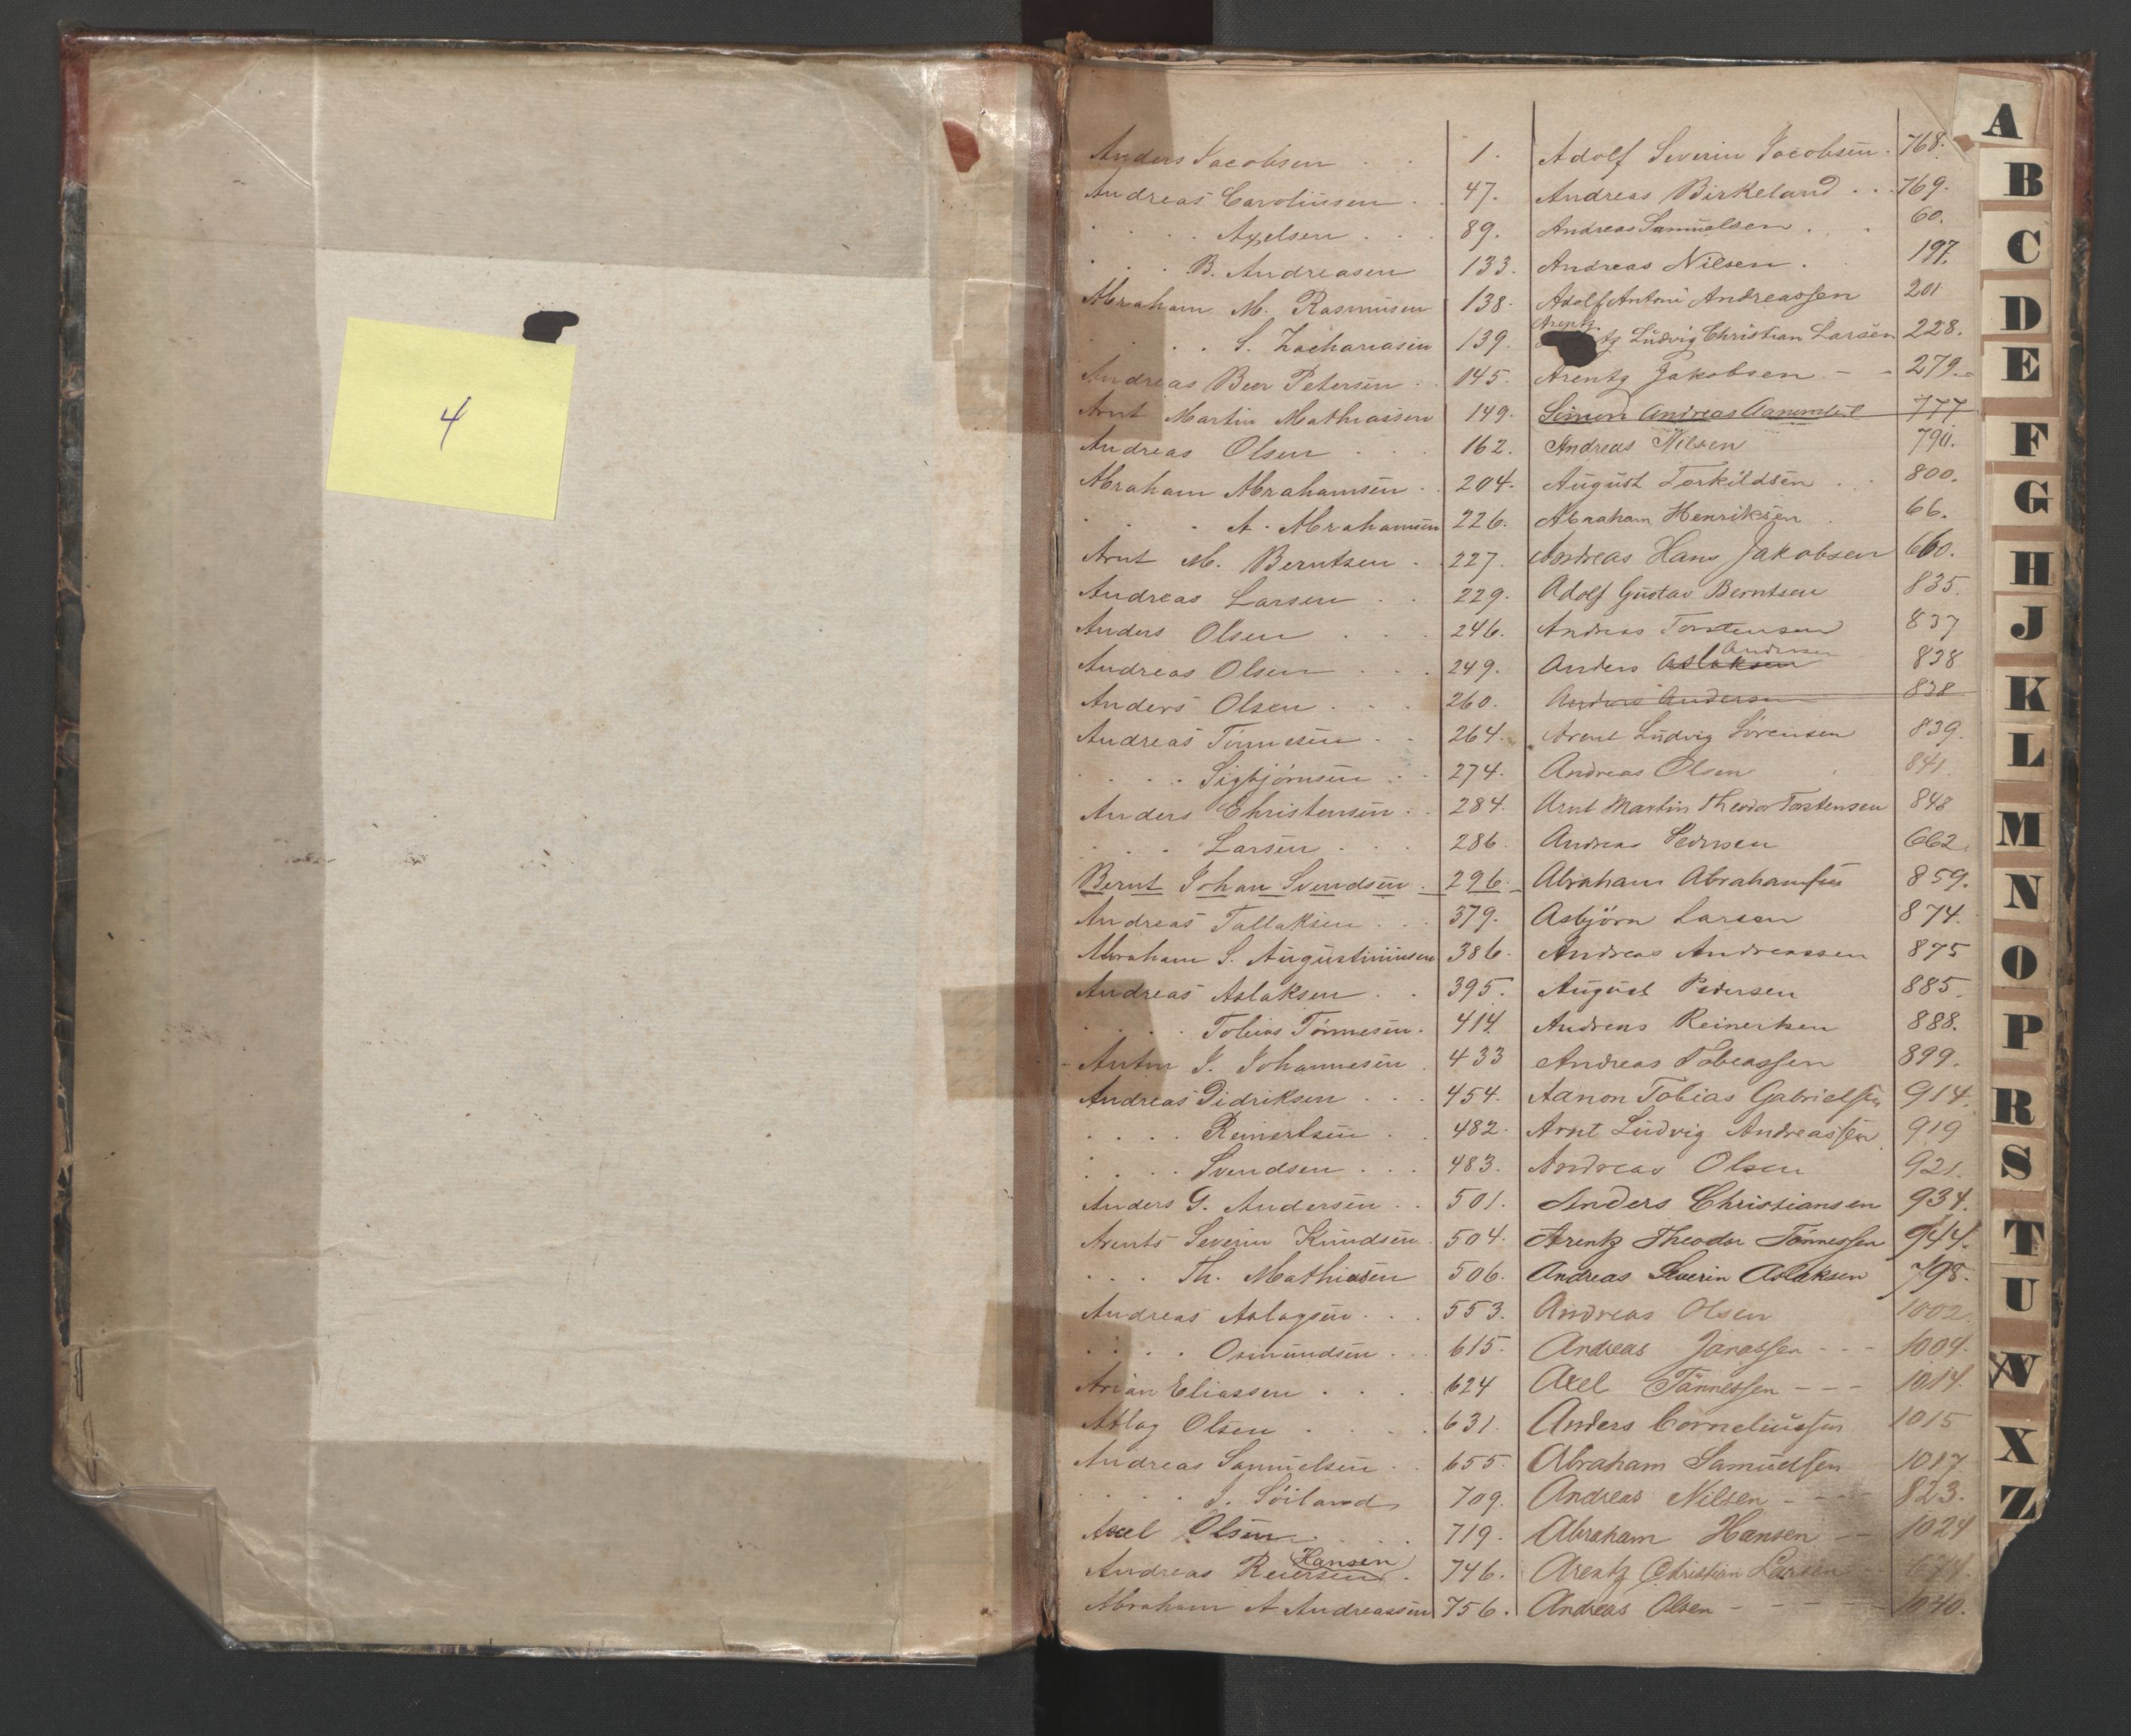 4
Anders Jacobsen . . 1.
Andreas Carolinsen . . 47.
. . . . Axelsen . . . 89.
. . . B. Andreasen 133.
Abraham M. Rasmusen 138.
. . . . S. Zachariasen 139.
Andreas Beer Petersen . . 145.
Arnt Martin Mathiassen 149.
Andreas Olsen . . . 162.
Abraham Abrahamsen . . 204.
. . . . A. Abrahamsen 226.
Arnt M. Berntsen . 227.
Andreas Larsen . . 229.
Anders Olsen . . . 246.
Andreas Olsen . . . 249.
Anders Olsen . . . 260.
Andreas Tönnesen . . 264.
. . . . Sigbjörnsen . . 274.
Anders Christensen . . 284.
. . . . Larsen . . . 286.
Bernt Johan Svendsen . 296.
Andreas Tallaksen . . . 379.
Abraham S. Augustiniusen 386.
Andreas Aslaksen . . 395.
. . . . Tobias Tönnesen . 414.
Anton J. Johannesen . 433
Andreas Didriksen . . . 454.
. . . . Reinertsen . . 482.
. . . . Svendsen . . . 483.
Anders G. Andersen . . 501.
Arents Severin Knudsen . 504.
. . . Th. Mathiasen 506.
Andreas Aslagsen . . . 553.
. . . . Osmundsen . . . 615.
Arian Eliassen . . . . 624
Atlag Olsen . . . . 631.
Andreas Samuelsen . . 655.
. . . . J. Söiland 709.
Axel Olsen . . . 719.
Hansen
Andreas Reiersen . 746.
Abraham A Andreassen 756.
Adolf Severin Jacobsen . 768.
Andreas Birkeland . . . 769.
Andreas Samuelsen . . 60.
Andreas Nilsen . 197.
Adolf Antoni Andreassen 201
Arentz
tz Ludvig Christian Larsen 228.
Arentz Jakobsen - - 279.
Simon Andreas 777
Andreas Nilsen 790.
August Torkildsen . . 800.
Abraham Henriksen . 66.
Andreas Hans Jakobsen 660.
Adolf Gustav Berntsen 835.
Andreas Torstensen 837
Andersen
Anders Aslaksen 838
Anders Andersen 838
Arent Ludvig Sörensen 839.
Andreas Olsen . 841
Arnt Martin Theodor Torstensen 848
Andreas Pedersen 662.
Abraham Abrahamsen 859.
Asbjörn Larsen 874.
Andreas Andreassen 875
August Pedersen 885.
Andreas Reinertsen 888.
Andreas Tobiassen 899.
Aanon Tobias Gabrielsen 914.
Arnt Ludvig Andreassen 919
Andreas Olsen 921.
Anders Christiansen 934.
Arentz Theodor Tönnessen 944.
Andreas Severin Aslaksen 798.
Andreas Olsen 1002
Andreas Janassen - - - 1004.
Axel Tönnessen - - - 1014.
Anders Corneliussen 1015
Abraham Samuelsen 1017
Andreas Nilsen - - - - 823.
Abraham Hansen - - 1024
Arentz Christian Larsen 674.
Andreas Olsen - - - - - 1040.
A
B
C
D
E
F
G
H
J
K
L
M
N
O
P
R
S
T
U
W
X
Z